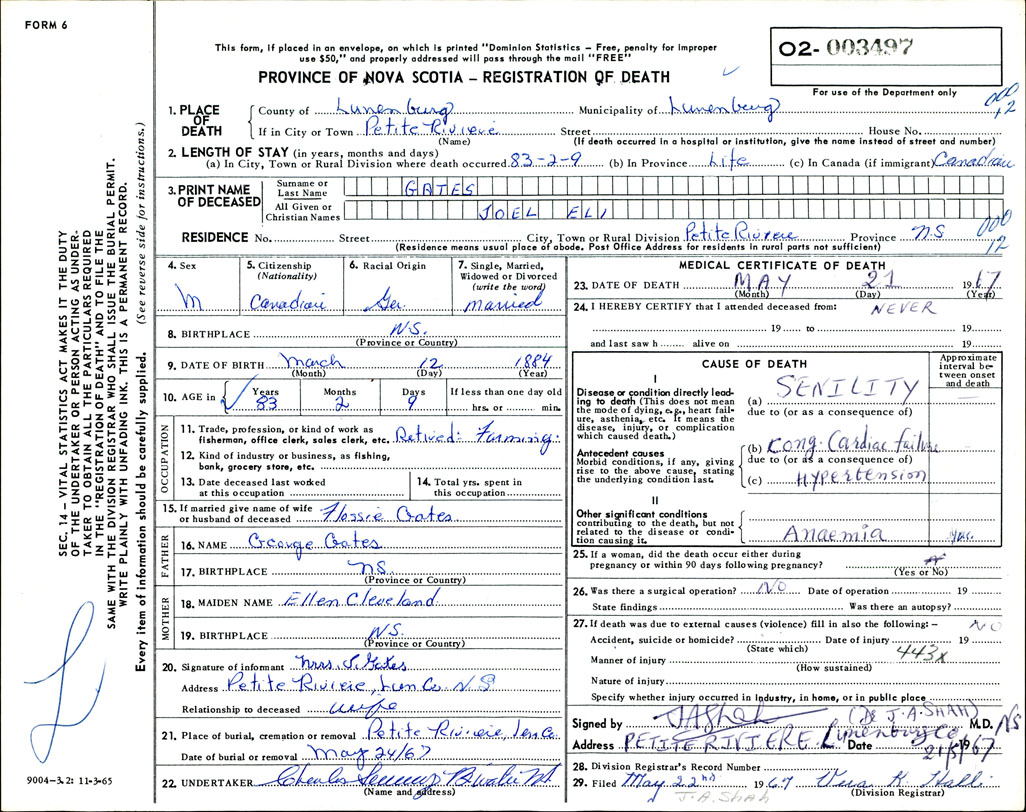 FORM 6
This form, if placed in an envelope, on which is printed "Dominion Statistics – Free, penalty for improper
use $50," and properly addressed will pass through the mail "FREE"
PROVINCE OF NOVA SCOTIA – REGISTRATION OF DEATH
02- 003497
For use of the Department only
000
12
1. PLACE OF DEATH
County of Lunenburg Municipality of Lunenburg
If in City or Town Petite Riviere Street House No.
(Name) (If death occurred in a hospital or institution, give the name instead of street and number)
2. LENGTH OF STAY (in years, months and days)
(a) In City, Town or Rural Division where death occurred 83-2-9 (b) In Province Life (c) In Canada (if immigrant) Canadian
3. PRINT NAME OF DECEASED
Surname or Last Name GATES
All Given or Christian Names JOEL ELI
RESIDENCE No. Street City, Town or Rural Division Petite Riviere Province NS
000
12
(Residence means usual place of abode. Post Office Address for residents in rural parts not sufficient)
4. Sex M
5. Citizenship (Nationality) Canadian
6. Racial Origin Ger.
7. Single, Married, Widowed or Divorced (write the word) married
8. BIRTHPLACE N.S.
(Province or Country)
9. DATE OF BIRTH March 12 1884
(Month) (Day) (Year)
10. AGE in Years 83 Months 2 Days 9 If less than one day old hrs. or min.
OCCUPATION
11. Trade, profession, or kind of work as
fisherman, office clerk, sales clerk, etc. Retired: Farming.
12. Kind of industry or business, as fishing,
bank, grocery store, etc.
13. Date deceased last worked
at this occupation
14. Total yrs. spent in
this occupation
15. If married give name of wife
or husband of deceased Flossie Gates
FATHER
16. NAME George Gates
17. BIRTHPLACE NS.
(Province or Country)
MOTHER
18. MAIDEN NAME Ellen Cleveland
19. BIRTHPLACE N.S.
(Province or Country)
20. Signature of informant Mrs. J. Gates
Address Petite Riviere, Lun Co. N S
Relationship to deceased wife
21. Place of burial, cremation or removal Petite Riviere, Lun Co.
Date of burial or removal May 24/67
22. UNDERTAKER
(Name and address)
MEDICAL CERTIFICATE OF DEATH
23. DATE OF DEATH MAY 21 1967
(Month) (Day) (Year)
24. I HEREBY CERTIFY that I attended deceased from: NEVER
19 to 19
and last saw h alive on 19
CAUSE OF DEATH
Approximate interval between onset and death
I
Disease or condition directly leading
to death (This does not mean
the mode of dying, e.g., heart failure,
asthenia, etc. It means the
disease, injury, or complication
which caused death.)
(a) SENILITY
due to (or as a consequence of)
Antecedent causes
Morbid conditions, if any, giving
rise to the above cause, stating
the underlying condition last.
(b) Cong. Cardiac failure
due to (or as a consequence of)
(c) HYPERTENSION
II
Other significant conditions
contributing to the death, but not
related to the disease or condition
causing it.
Anaemia
25. If a woman, did the death occur either during
pregnancy or within 90 days following pregnancy?
(Yes or No)
26. Was there a surgical operation? NO Date of operation 19
State findings Was there an autopsy?
27. If death was due to external causes (violence) fill in also the following: – NO
Accident, suicide or homicide? Date of injury 19
(State which)
443x
Manner of injury
(How sustained)
Nature of injury
Specify whether injury occurred in Industry, in home, or in public place
Signed by JAShah (Dr J.A. SHAH) M.D. NS
Address PETITE RIVIERE Lunenburg Co Date 21/5/1967
28. Division Registrar's Record Number
29. Filed May 22nd 1967 Vera K.
(Division Registrar)
J.A. Shah
SEC. 14 – VITAL STATISTICS ACT MAKES IT THE DUTY
OF THE UNDERTAKER OR PERSON ACTING AS UNDERTAKER
TO OBTAIN ALL THE PARTICULARS REQUIRED
IN THE "REGISTRATION OF DEATH" AND TO FILE THE
SAME WITH THE DIVISION REGISTRAR WHO SHALL ISSUE THE BURIAL PERMIT.
WRITE PLAINLY WITH UNFADING INK. THIS IS A PERMANENT RECORD.
Every item of information should be carefully supplied. (See reverse side for instructions.)
9004-3.2: 11-3-65